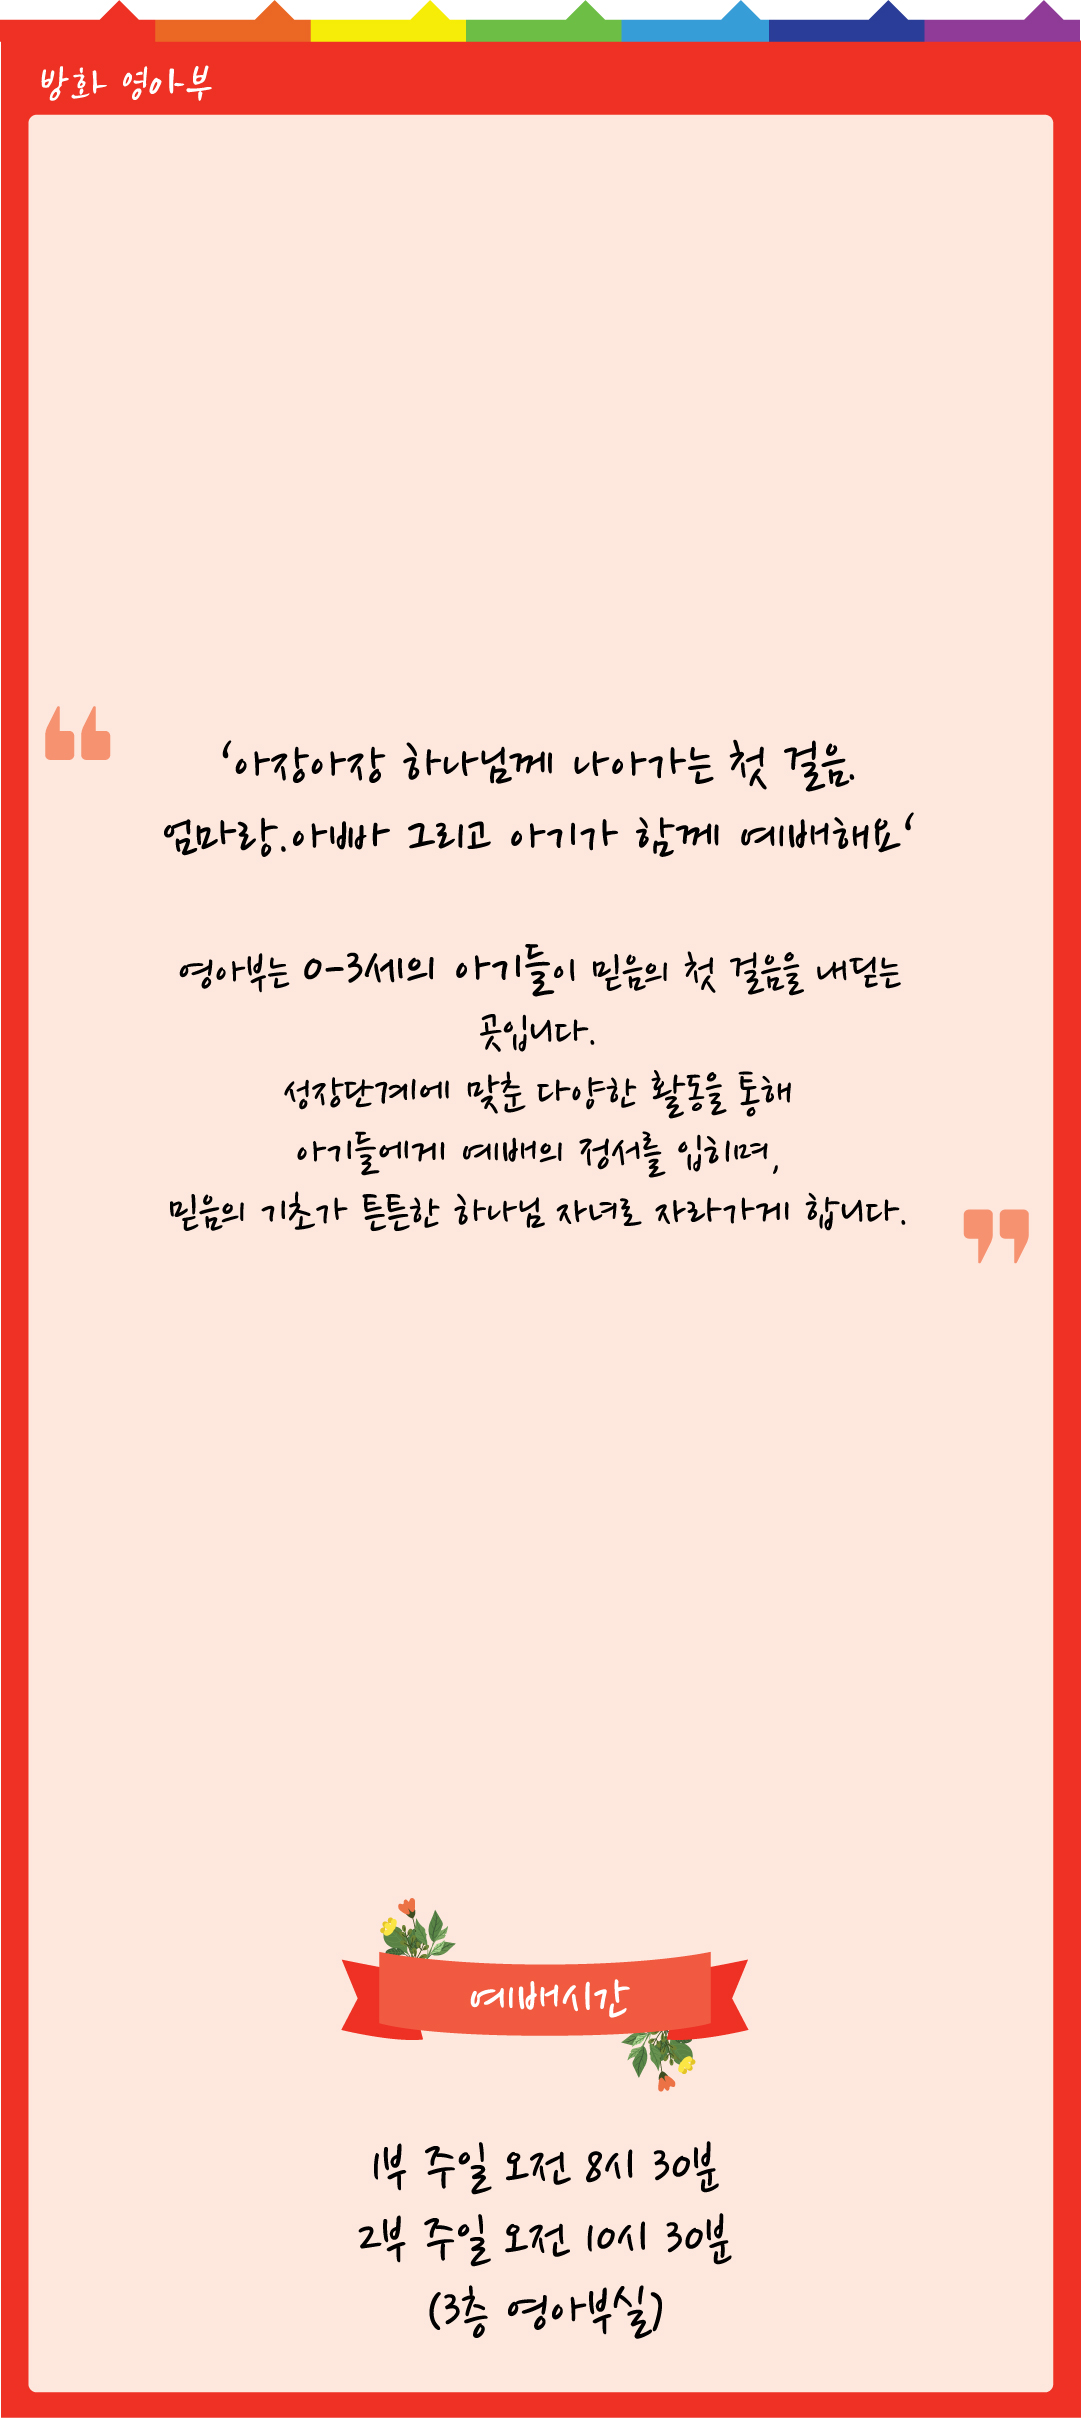 방화 영아부
‘아장아장 하나님께 나아가는 첫 걸음.
엄마랑.아빠와 그리고 아기가 함께 예배해요‘
영아부는 0-3세의 아기들이 믿음의 첫 걸음을 내딛는
곳입니다.
성장단계에 맞춘 다양한 활동을 통해
아기들에게 예배의 정서를 입히며,
믿음의 기초가 튼튼한 하나님 자녀로 자라가게 합니다.
예배시간
1부 주일 오전 8시 30분
2부 주일 오전 10시 30분
(3층 영아부실)